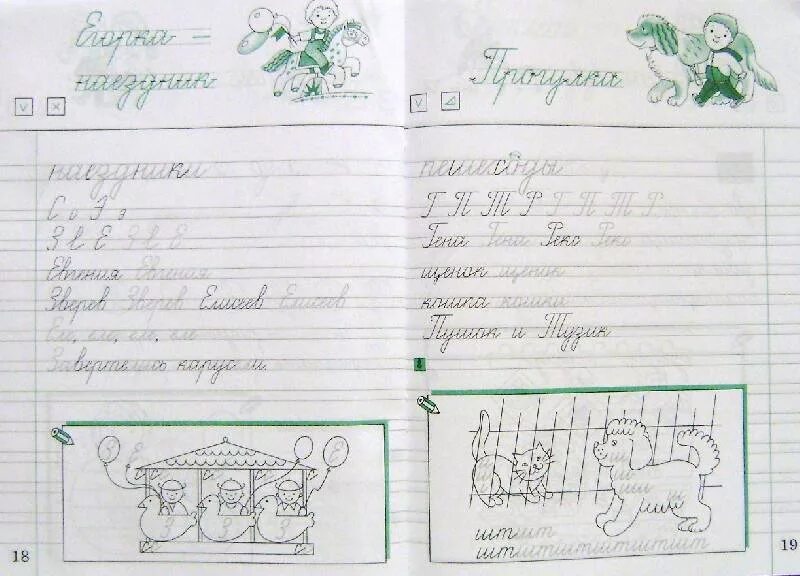 Егорка –
наездник
v x
наездники
С с Э э
З в Е З в Е
Евгения Евгения
Зверев Зверев Елисеев Елисеев
Ем, ем, ем, ем
Завертелись карусели.
З Е
З З З
18
Прогулка
v
пешеходы
Г П Т Р Г П Т Р
Гена Гена Рекс Рекс
щенок щенок
кошка кошка
Пушок и Тузик
ш
ш ш ш
шт шт
шт шт шт шт шт шт шт
19